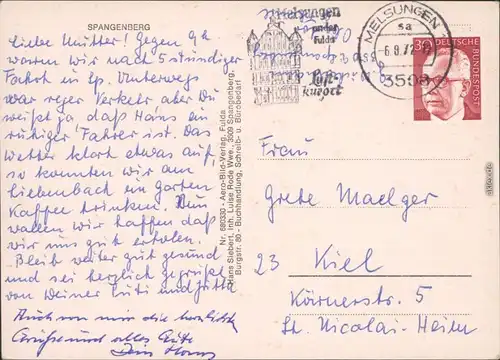 SPANGENBERG
Liebe Mutter! Gegen 9h
waren wir nach 5 stündiger
Fahrt in Sp. Unterwegs
war reger Verkehr aber Du
weißt ja daß Hans ein
ruhiger Fahrer ist. Das
Wetter klart etwas auf,
so konnten wir am
Liebenbach im Garten
Kaffee trinken. Nun
wollen wir hoffen daß
wir uns gut erholen.
Bleib weiter gut gesund
und sei herzlich gegrüßt
von Deiner Luti und Jutta
Auch von mir die herzlichsten
Grüße und alles Gute
Dein Hans
Nr. 680330 - Aero-Bild-Verlag, Fulda
Hans Siebert, Inh. Luise Rode Wwe., 3509 Spangenberg,
Burgstr. 80 - Buchhandlung, Schreib- u. Bürobedarf
Melsungen
an der
Fulda
Luft-
kurort
MELSUNGEN
sa
6.9.72
3508
30 DEUTSCHE BUNDESPOST
Frau
Grete Maelger
23 Kiel
Körnerstr. 5
St. Nicolai-Heim